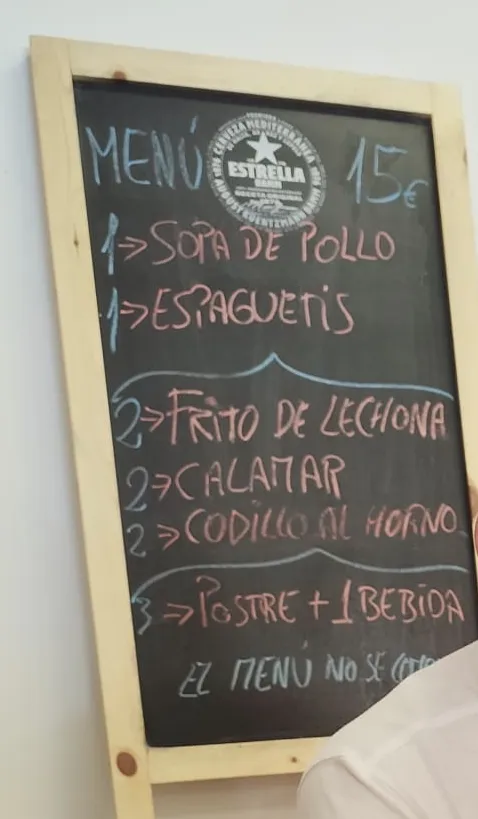 MENÚ 15€
CERVEZA MEDITERRÁNEA
ESTRELLA
DAMM
1→SOPA DE POLLO
1→ESPAGUETIS
2→FRITO DE LECHONA
2→CALAMAR
2→CODILLO AL HORNO
3→POSTRE + 1 BEBIDA
EL MENÚ NO SE